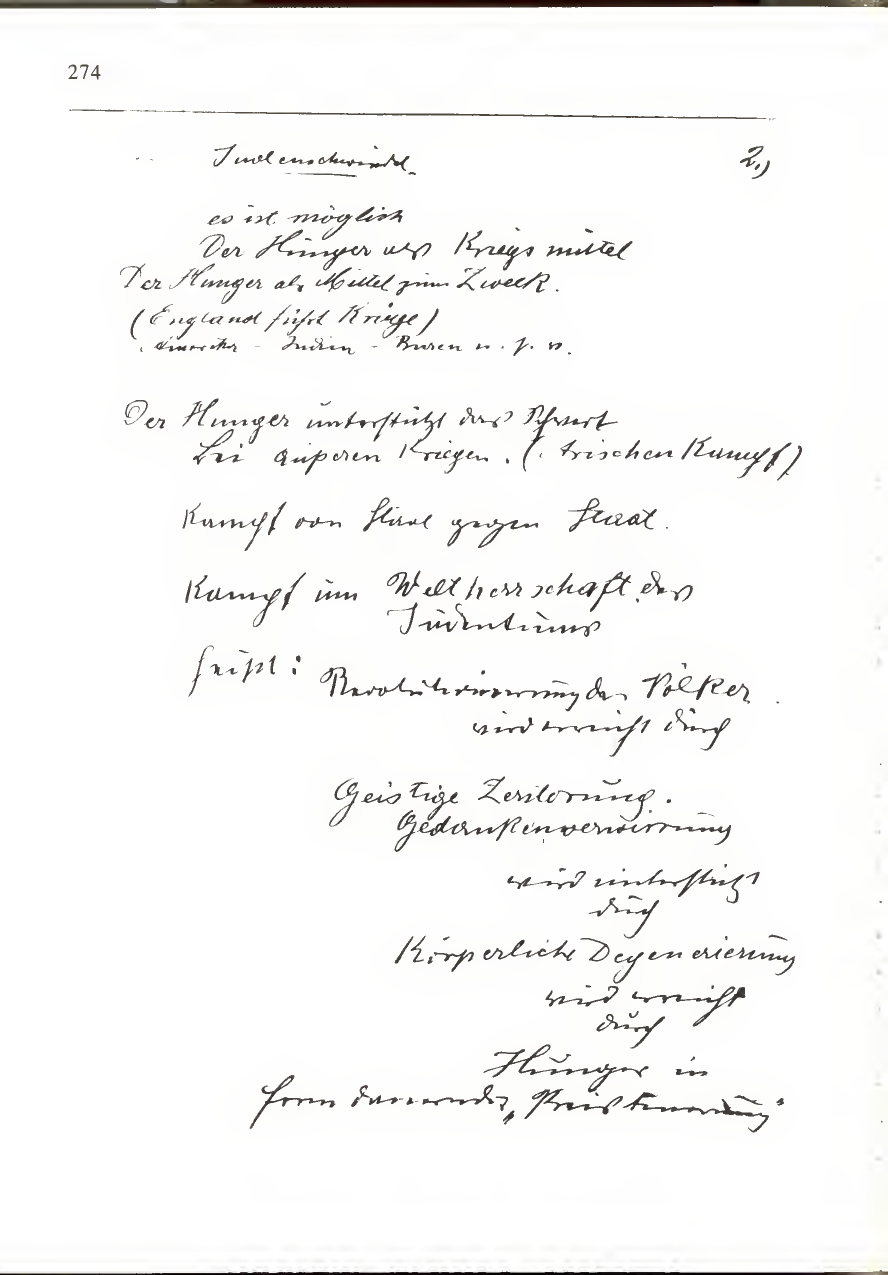 274
Judenschwindel. 2.)
es ist möglich
Der Hunger als Kriegsmittel
Der Hunger als Mittel zum Zweck.
(England führt Kriege)
Indien - Buren u. s. w.
Der Hunger unterstützt das Schwert
bei äußeren Kriegen. (. trischen Kampf)
Kampf von Staat gegen Staat.
Kampf um Weltherrschaft des
Judentums
heißt:
Revolutionierung der Völker
wird erreicht durch
Geistige Zerstörung.
Gedankenverwirrung
wird unterstützt
durch
Körperliche Degenerierung
wird erreicht
durch
Hunger in
form dauernder „Preissteuerung"